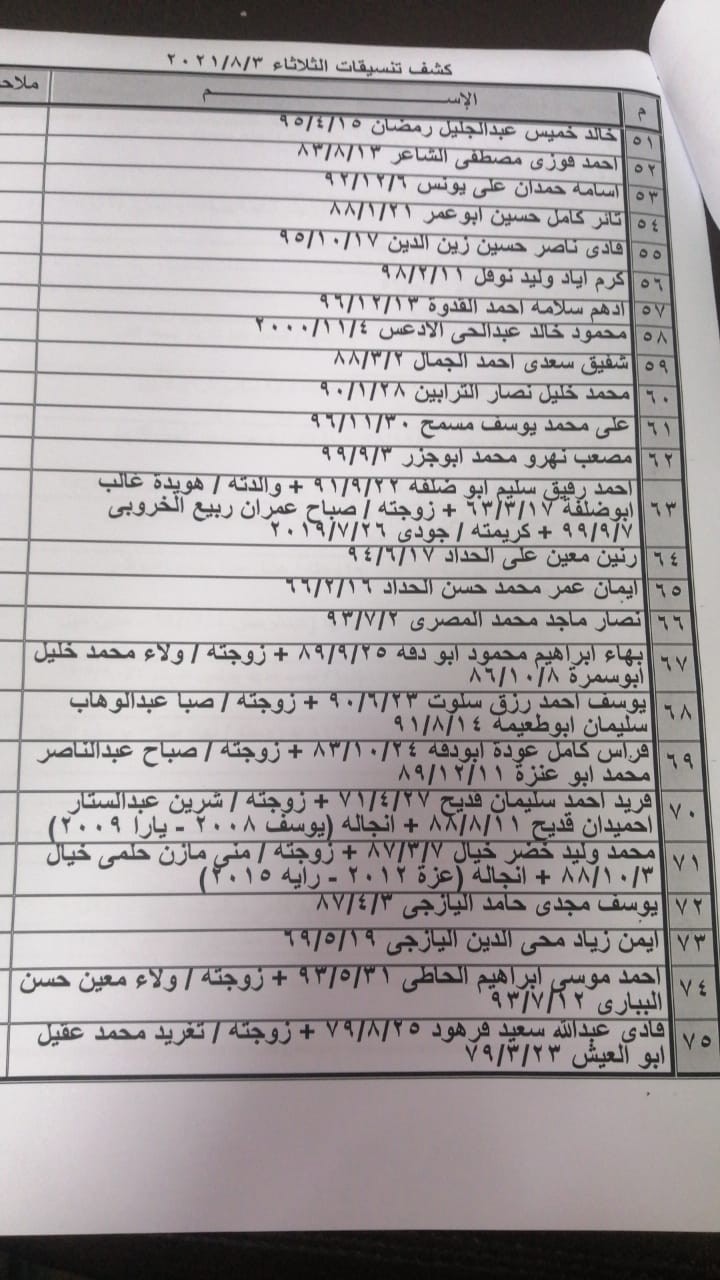 كشف تنسيقات الثلاثاء ٢٠٢١/٨/٣
م الإســـــــم ملاحـ
٥١ خالد خميس عبدالجليل رمضان ٩٥/٤/١٥
٥٢ احمد فوزى مصطفى الشاعر ٨٣/٨/١٣
٥٣ اسامه حمدان على يونس ٩٢/١٢/٦
٥٤ ثائر كامل حسين ابوعمر ٨٨/١/٢١
٥٥ فادى ناصر حسين زين الدين ٩٥/١٠/١٧
٥٦ كرم اياد وليد نوفل ٩٨/٢/١١
٥٧ ادهم سلامه احمد القدوة ٩٦/١٢/١٣
٥٨ محمود خالد عبدالحى الادعس ٢٠٠٠/١١/٤
٥٩ شفيق سعدى احمد الجمال ٨٨/٣/٢
٦٠ محمد خليل نصار الترابين ٩٠/١/٢٨
٦١ على محمد يوسف مسمح ٩٦/١١/٣٠
٦٢ مصعب نهرو محمد ابوجزر ٩٩/٩/٣
٦٣ احمد رفيق سليم ابو ضلفه ٩١/٩/٢٢ + والدته / هويدة غالب
ابوضلفة ٦٣/٣/١٧ + زوجته / صباح عمران ربيع الخروبى
٩٩/٩/٧ + كريمته / جودى ٢٠١٩/٧/٢٦
٦٤ رنين معين على الحداد ٩٤/٦/١٧
٦٥ ايمان عمر محمد حسن الحداد ٦٦/٢/١٦
٦٦ نصار ماجد محمد المصرى ٩٣/٧/٢
٦٧ بهاء ابراهيم محمود ابو دقه ٨٩/٩/٢٥ + زوجته / ولاء محمد خليل
ابوسمرة ٨٦/١٠/٨
٦٨ يوسف احمد رزق سلوت ٩٠/٦/٢٣ + زوجته / صبا عبدالوهاب
سليمان ابوطعيمه ٩١/٨/١٤
٦٩ فراس كامل عودة ابودقه ٨٣/١٠/٢٤ + زوجته / صباح عبدالناصر
محمد ابو عنزة ٨٩/١٢/١١
٧٠ فريد احمد سليمان قديح ٧١/٤/٢٧ + زوجته / شرين عبدالستار
احميدان قديح ٨٨/٨/١١ + انجاله (يوسف ٢٠٠٨ - يارا ٢٠٠٩)
٧١ محمد وليد خضر خيال ٨٧/٣/٧ + زوجته / مني مازن حلمى خيال
٨٨/١٠/٣ + انجاله (عزة ٢٠١٢ - رايه ٢٠١٥)
٧٢ يوسف مجدى حامد اليازجى ٨٧/٤/٣
٧٣ ايمن زياد محى الدين اليازجى ٦٩/٥/١٩
٧٤ احمد موسى ابراهيم الحاطى ٩٣/٥/٣١ + زوجته / ولاء معين حسن
البيارى ٩٣/٧/١٢
٧٥ فادى عبدالله سعيد فرهود ٧٩/٨/٢٥ + زوجته / تغريد محمد عقيل
ابو العيش ٧٩/٣/٢٣